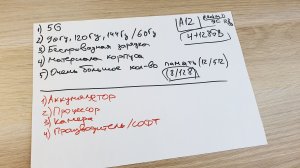 1) 5G
2) 90Гц, 120Гц, 144Гц / 60Гц
3) Беспроводная зарядка
4) Материала корпуса
5) Очень большое кол-во память (12/512)
(8/128)
A12
4+128Gb
1) Аккумулятор
2) Процесор
3) Камера
4) Производитель/СОФТ